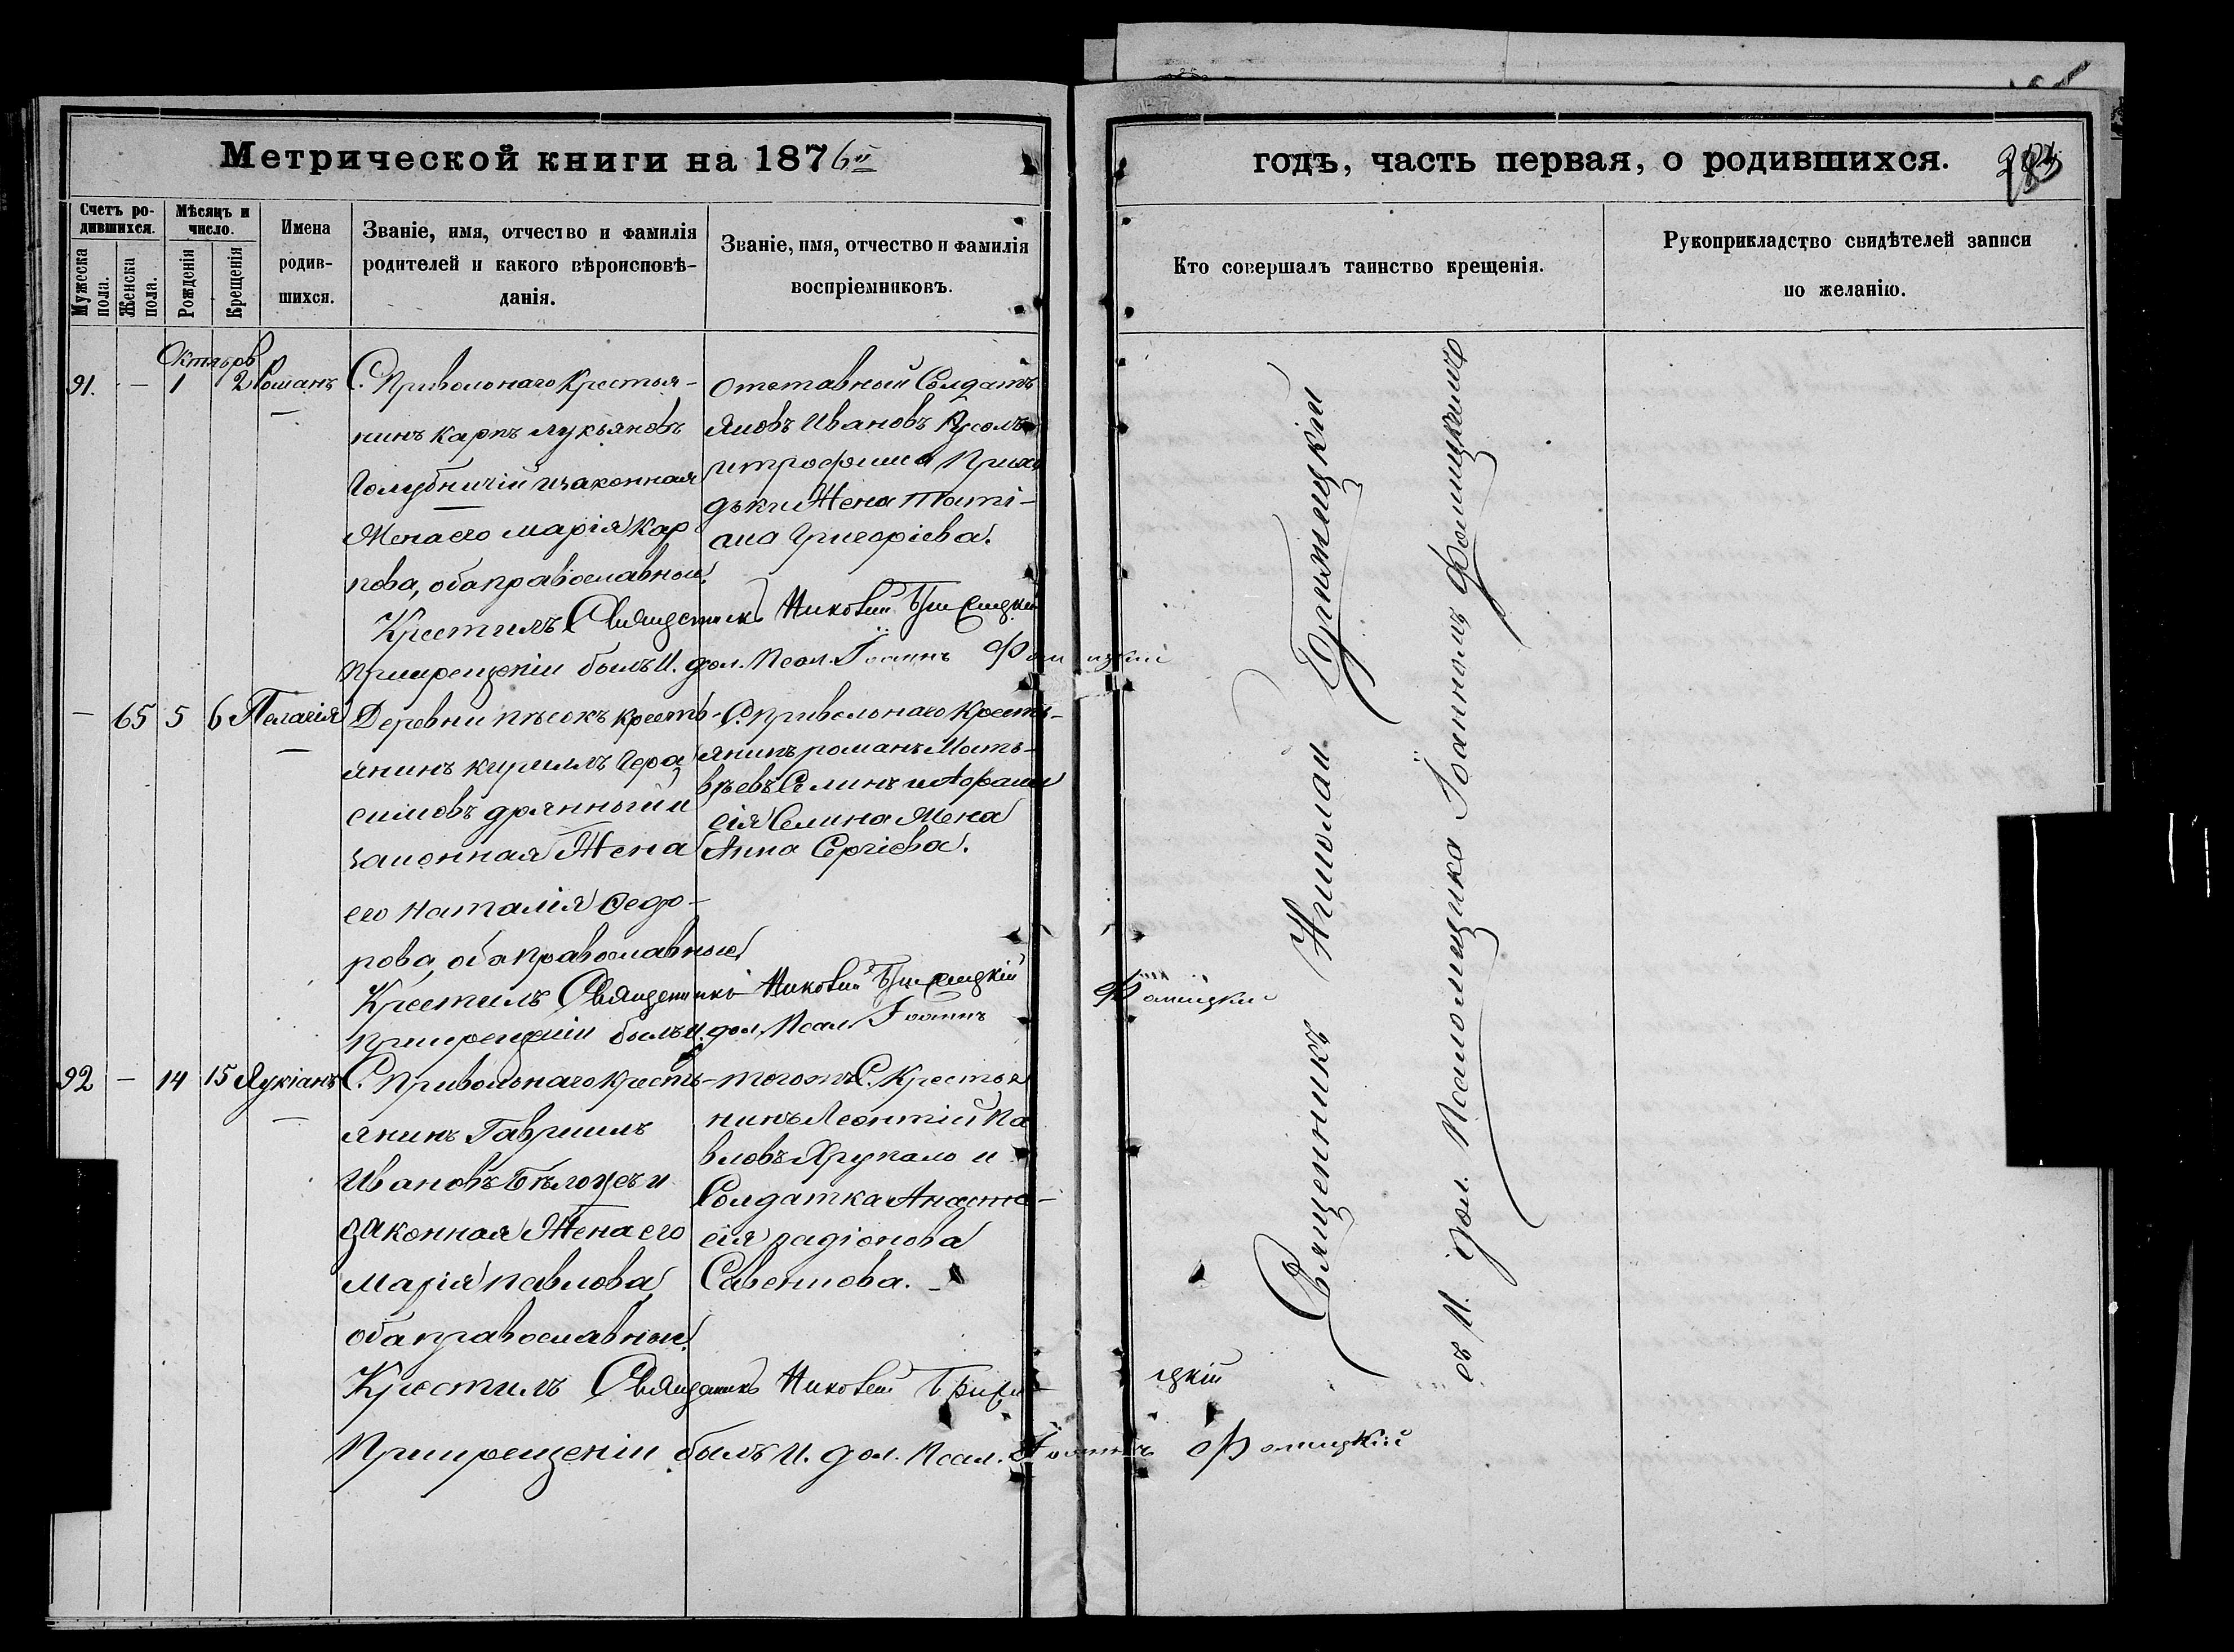 Метрической книги на 1876й
годъ, часть первая, о родившихся.
Счетъ родившихся.
Мѣсяцъ и число.
Мужеска пола.
Женска пола.
Рожденія
Крещенія
Имена родившихся.
Званіе, имя, отчество и фамилія
родителей и какого вѣроисповѣ-
данія.
Званіе, имя, отчество и фамилія
воспріемниковъ.
Кто совершалъ таинство крещенія.
Рукоприкладство свидѣтелей записи
по желанію.
Октябрь
91. — 1 2 Романъ
С. Привольнаго Крестья-
нинъ Карпъ Лукьяновъ
Голубничій и законная
Жена его Марія Кар
пова, оба православные.
Отставной Солдатъ
Яковъ Ивановъ
Жена Таті-
ана Григоріева.
Крестилъ Священникъ Николай
При крещеніи былъ И. дол. Псал. Іоаннъ Фомицкій
— 65 5 6 Пелагія
Деревни Пѣсокъ кресть-
янинъ Кирилъ Гера
симовъ Дрянный и
законная Жена
его Наталія Федо-
рова, оба православные
С. Привольнаго Кресть-
янинъ Романъ Мать-
вѣевъ Селинъ и Афана
сія Селина Жена
Анна Сергіева.
Крестилъ Священникъ Николай
При крещеніи былъ И. дол. Псал. Іоаннъ Фомицкій
92 — 14 15 Лукіанъ
С. Привольнаго Кресть-
янинъ Гавріилъ
Ивановъ Бѣлоусъ и
законная Жена его
Марія Павлова
оба православные.
того жъ С. Крестья
нинъ Леонтій Па
вловъ Хрупало и
Солдатка Анаста-
сія Радіонова
Савенкова.
Крестилъ Священникъ Николай
При крещеніи былъ И. дол. Псал. Іоаннъ Фомицкій
Священникъ Николай
съ И. дол. Псаломщика Іоанномъ Фомицкимъ